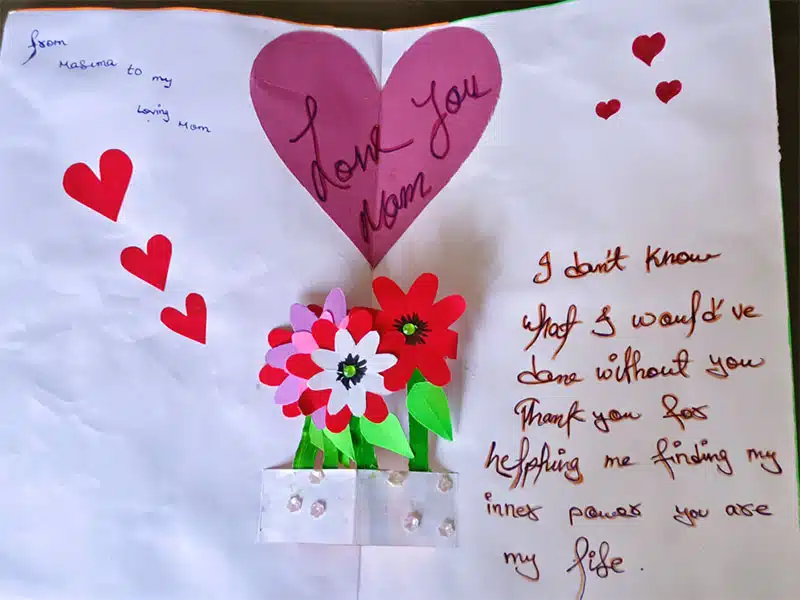 from
Masuma to my
Loving
Mom
Love You
Mom
I don't know
what I would've
done without you
Thank you for
helphing me finding my
inner power you are
my life.